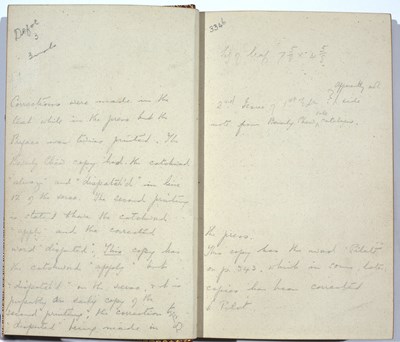 Defoe
3
Corrections were made in the
text while in the press but the
Preface was twice printed. The
Beverly Chew copy had the catchword
"always" and "dispatch'd" in line
12 of the verso. The second printing
is stated to have the catchword
"apply" and the corrected
word "disputed". This copy has
the catchword "apply" but
"dispatch'd" on the verso, & it is
probably an early copy of the
second printing, the correction to
"disputed" being made in
3366
of leaf 7
2nd Issue of 1st Edn. side
note from Beverly Chew Catalogue.
the press.
This copy has the word "Pilate"
on p. 343, which in some later
copies has been corrected
to Pilot